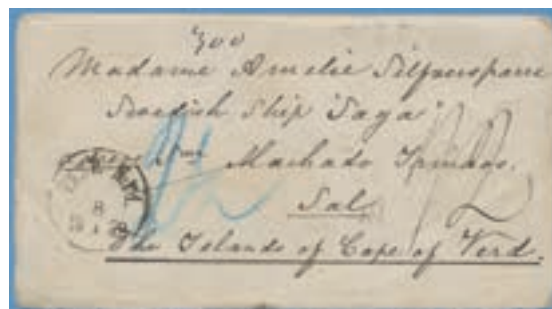 300
Madame Amelie Silfversparre
Swedish Ship "Saga"
Machado
Sal
The Islands of Cape of Verd.
8
12